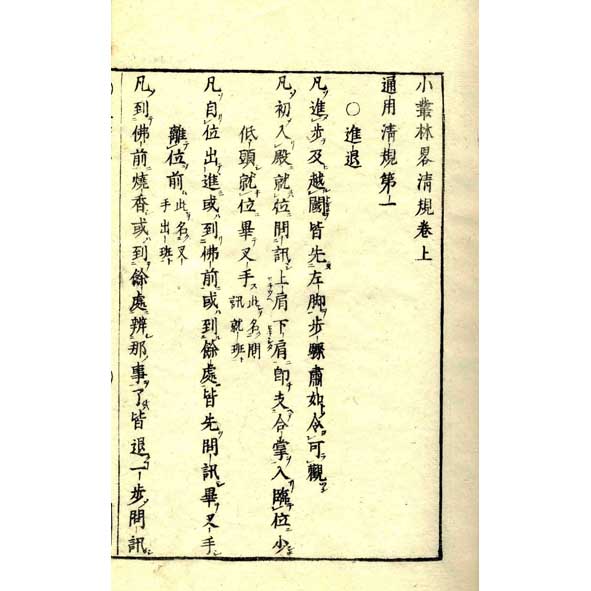 小叢林畧清規卷上
通用清規第一
○進退
凡進步及越閫皆先左脚步驟肅如令可觀
凡初入殿就位問訊上肩下肩即支合掌入臨位少
低頭就位畢叉手此名問訊就班
凡自位出進或到佛前或到餘處皆先問訊畢叉手
離位前此名叉手出班
凡到佛前燒香或到餘處辨那事了皆退一步問訊